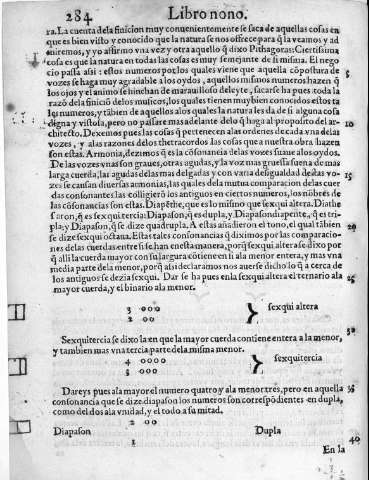 284 Libro nono.
ra. La cuenta dela finicion muy conuenientemente se saca de aquellas cosas en
que es bien visto y conocido que la natura se nos ofrece para q̃ la veamos y ad
miremos, y yo afirmo vna vez y otra aquello q̃ dixo Pithagoras: Ciertissima
cosa es que la natura en todas las cosas es muy semejante de si misma. El nego
cio passa assi: estos numeros por los quales viene que aquella cõpostura de 5
vozes se haga muy agradable a los oydos, aquellos mismos numeros hazen q̃
los ojos y el animo se hinchan de marauilloso deleyte, sacarse ha pues toda la
razõ dela finiciõ delos musicos, los quales tienen muy bien conocidos estos ta
les numeros, y tãbien de aquellos alos quales la natura les da de si alguna cosa
digna y vistosa, pero no passare mas adelante delo q̃ haga al proposito del ar- 10
chitecto. Dexemos pues las cosas q̃ pertenecen alas ordenes de cada vna delas
vozes, y alas razones delos thetracordos las cosas que a nuestra obra hazen
son estas. Armonia, dezimos q̃ es la cõsonancia delas vozes suaue alos oydos.
De las vozes vnas son graues, otras agudas, y la voz mas gruessa suena de mas
larga cuerda, las agudas delas mas delgadas y con varia desigualdad destas vo- 15
zes se causan diuersas armonias, las quales dela mutua comparacion delas cuer
das consonantes las colligierõ los antiguos en ciertos numeros, los nõbres de
las cõsonancias son estas. Diapẽthe, que es lo mismo que sexqui altera. Diathe
saron, q̃ es sexquitercia; Diapason, q̃ es dupla, y Diapasondiapente, q̃ es tri-
pla; y Diapasiõ, q̃ se dize quadrupla. A estas añadieron el tono, el qual tãbien 20
se dize sexqui octaua. Estas tales consonancias q̃ diximos por las comparacio-
nes delas cuerdas entre si se han en esta manera, porq̃ sexqui altera se dixo por
q̃ alli la cuerda mayor con su largura cõtiene en si ala menor entera, y mas vna
media parte dela menor, porq̃ assi declaramos nos auer se dicho lo q̃ a cerca de
los antiguos se dezia sexqui. Dar se ha pues enla sexqui altera el ternario ala 25
mayor cuerda, y el binario ala menor.
3 ooo
2 oo
sexqui altera
Sexquitercia se dixo la en que la mayor cuerda contiene entera a la menor, 30
y tambien mas vna tercia parte dela misma menor.
4 oooo
3 ooo
sexquitercia
Dareys pues ala mayor el numero quatro y ala menor tres, pero en aquella 35
consonancia que se dize diapason los numeros son correspõdientes en dupla,
como del dos ala vnidad, y el todo a su mitad.
2 oo
Diapason Dupla
1
40
En la